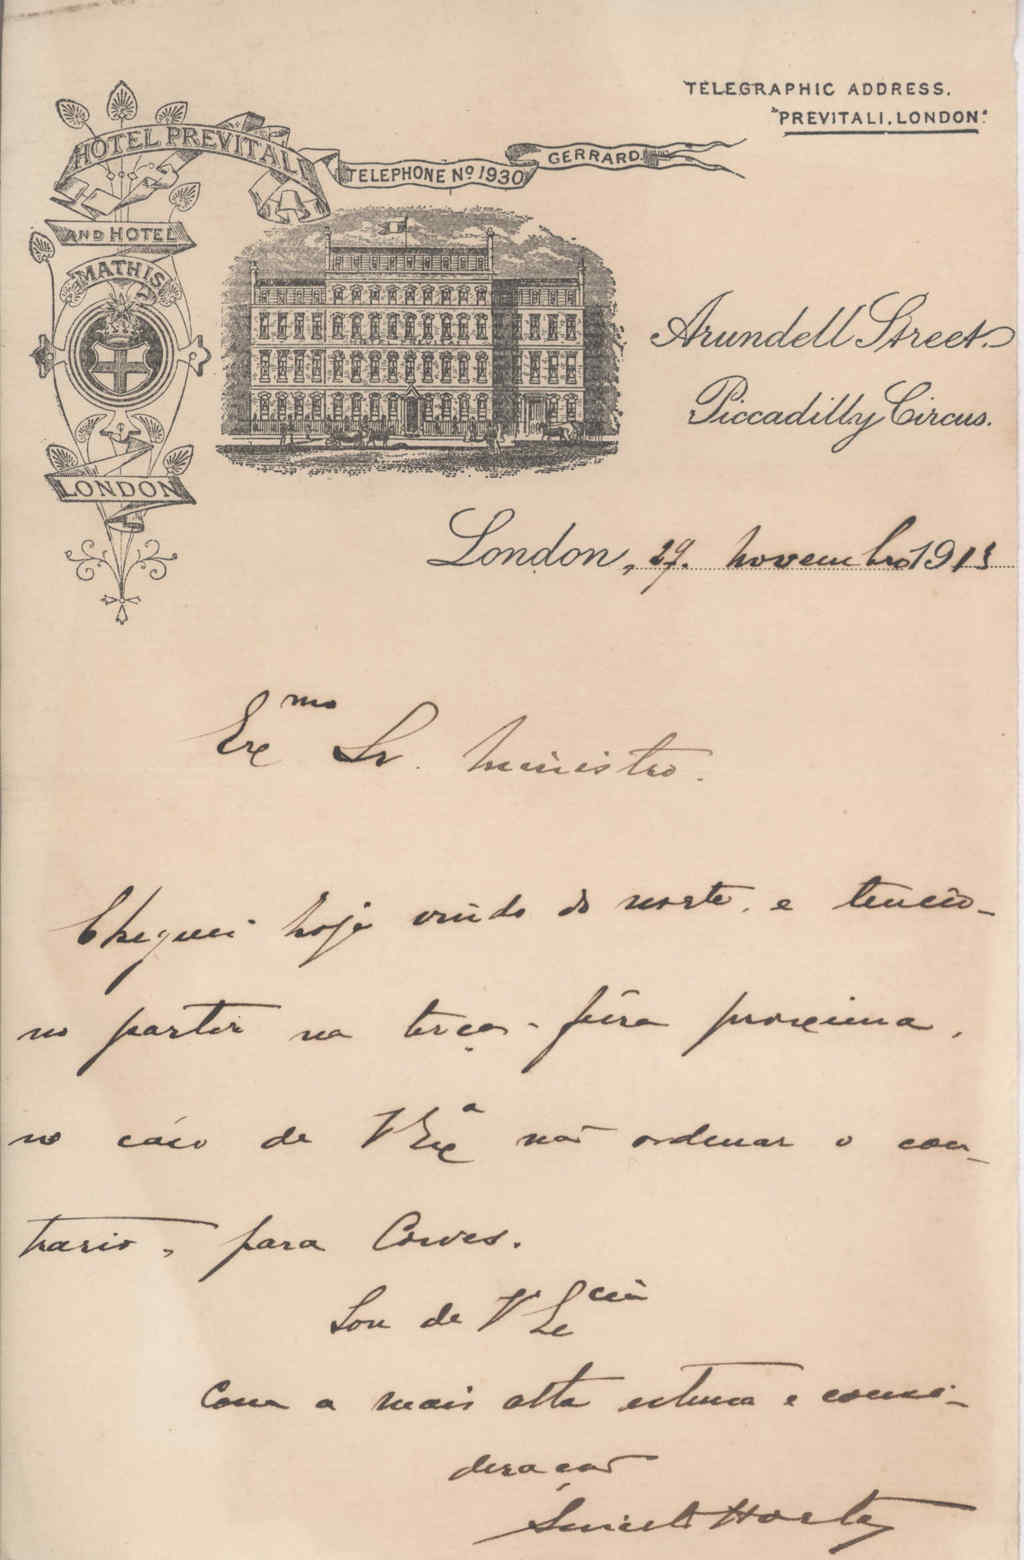 TELEGRAPHIC ADDRESS.
"PREVITALI, LONDON."
HOTEL PREVITALI
TELEPHONE Nº 1930
GERRARD.
AND HOTEL
MATHIS
LONDON
Arundell Street.
Piccadilly Circus.
London, 29. novembro 1913
Exmo Sr. Ministro.
Cheguei hoje vindo do norte, e tencio-
no partir na terça-feira proxima,
no caso de V Exa não ordenar o con-
trario, para Cowes.
Sou de V Excia
Com a mais alta estima e consi-
deração
Horta